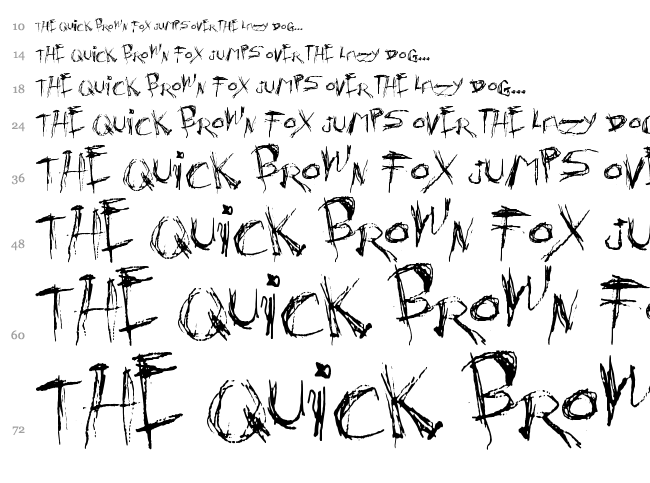 10 THE QUICK BROWN FOX JUMPS OVER THE LAZY DOG...
14 THE QUICK BROWN FOX JUMPS OVER THE LAZY DOG...
18 THE QUICK BROWN FOX JUMPS OVER THE LAZY DOG...
24 THE QUICK BROWN FOX JUMPS OVER THE LAZY DOG
36 THE QUICK BROWN FOX JUMPS OVE
48 THE QUICK BROWN FOX JU
60 THE QUICK BROWN F
72 THE QUICK BROW